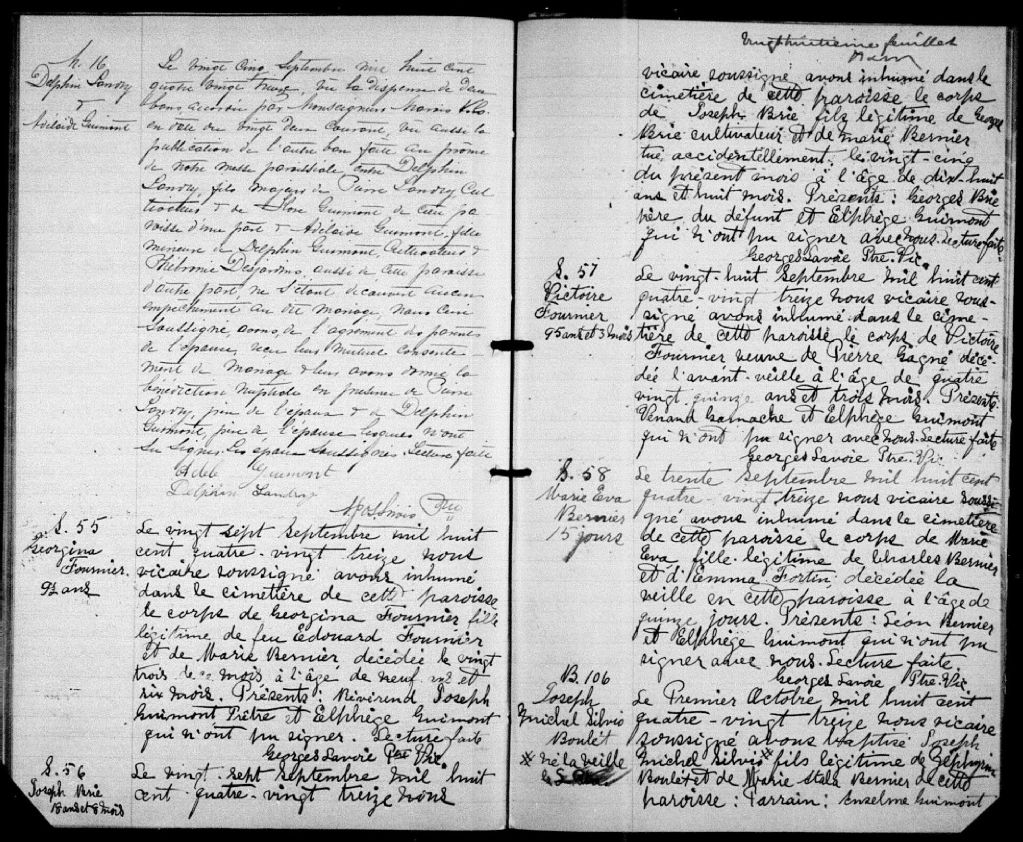 M. 16
Delphin Landry
&
Adelaide Guimont
Le vingt cinq Septembre mil huit cent
quatre vingt treize, vu la dispense de deux
bans accordée par Monseigneur
en date du vingt deux courant, vu aussi la
publication de l'autre ban faite au prône
de notre messe paroissiale entre Delphin
Landry, fils majeur de Pierre Landry Cul
tivateur & de Guimont de cette pa
roisse d'une part & Adelaide Guimont, fille
mineure de Delphin Guimont, Cultivateur &
Desjardins, aussi de cette paroisse
d'autre part, ne s'étant découvert aucun
empêchement au dit mariage, Nous Curé
Soussigné avons, de l'agrément des parents
de l'épouse, reçu leur mutuel consente-
ment de mariage & leur avons donné la
bénédiction nuptiale en présence de Pierre
Landry, père de l'époux & de Delphin
Guimont, père de l'épouse lesquels n'ont
su signer. Les époux soussignés. Lecture faite
Adele Guimont
Delphin Landry
Ptre
S. 55
Georgina
Fournier.
9½ ans
Le vingt sept septembre mil huit
cent quatre-vingt treize nous
vicaire soussigné avons inhumé
dans le cimetière de cette paroisse
le corps de Georgina Fournier fille
légitime de feu Edouard Fournier
et de Marie Bernier décédée le vingt
trois de ce mois à l'âge de neuf ans et
six mois. Présents: Révérend Joseph
Guimont Prêtre et Elphège Guimont
qui n'ont pu signer. Lecture faite
Georges Savoie Ptre Vic.
S. 56
Joseph Brie
18 ans et 8 mois
Le vingt-sept septembre mil huit
cent quatre-vingt treize nous
Vingthuitième feuillet
vicaire soussigné avons inhumé dans le
cimetière de cette paroisse le corps
de Joseph Brie fils légitime de Georges
Brie cultivateur et de Marie Bernier
tué accidentellement le vingt-cinq
du présent mois à l'âge de dix-huit
ans et huit mois. Présents: Georges Brie
père du défunt et Elphège Guimont
qui n'ont pu signer avec nous. Lecture faite
Georges Savoie Ptre. Vic.
S. 57
Victoire
Fournier
95 ans et 3 mois
Le vingt-huit septembre mil huit cent
quatre-vingt treize nous vicaire sous-
signé avons inhumé dans le cime-
tière de cette paroisse le corps de Victoire
Fournier veuve de Pierre Gagné décé-
dée l'avant-veille à l'âge de quatre
vingt quinze ans et trois mois. Présents:
Venand Gamache et Elphège Guimont
qui n'ont pu signer avec nous. Lecture faite
Georges Savoie Ptre. Vic.
S. 58
Marie Eva
Bernier
15 jours
Le trente septembre mil huit cent
quatre-vingt treize nous vicaire soussi-
gné avons inhumé dans le cimetière
de cette paroisse le corps de Marie
Eva fille légitime de Charles Bernier
et d'Emma Fortin, décédée la
veille en cette paroisse à l'âge de
quinze jours. Présents: Léon Bernier
et Elphège Guimont qui n'ont pu
signer avec nous. Lecture faite
Georges Savoie Ptre. Vic
B. 106
Joseph
Michel Silvio
Boulet
※ né la veille
Le Premier Octobre mil huit cent
quatre-vingt treize nous vicaire
soussigné avons baptisé Joseph
Michel Silvio ※ fils légitime de Zéphyrin
Boulet et de Marie Stela Bernier de cette
paroisse: Parrain: Anselme Guimont